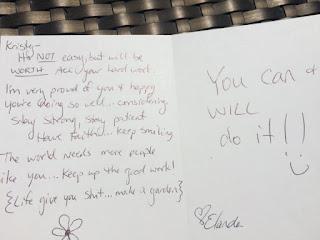 Kristy-
It's NOT easy, but will be
WORTH ALL your hard work.
I'm very proud of you & happy
you're doing so well... considering.
Stay Strong, Stay patient
Have Faith... Keep smiling
The world needs more people
like you... Keep up the good work!
{Life give you shit... make a garden}
You can &
WILL
do it!!